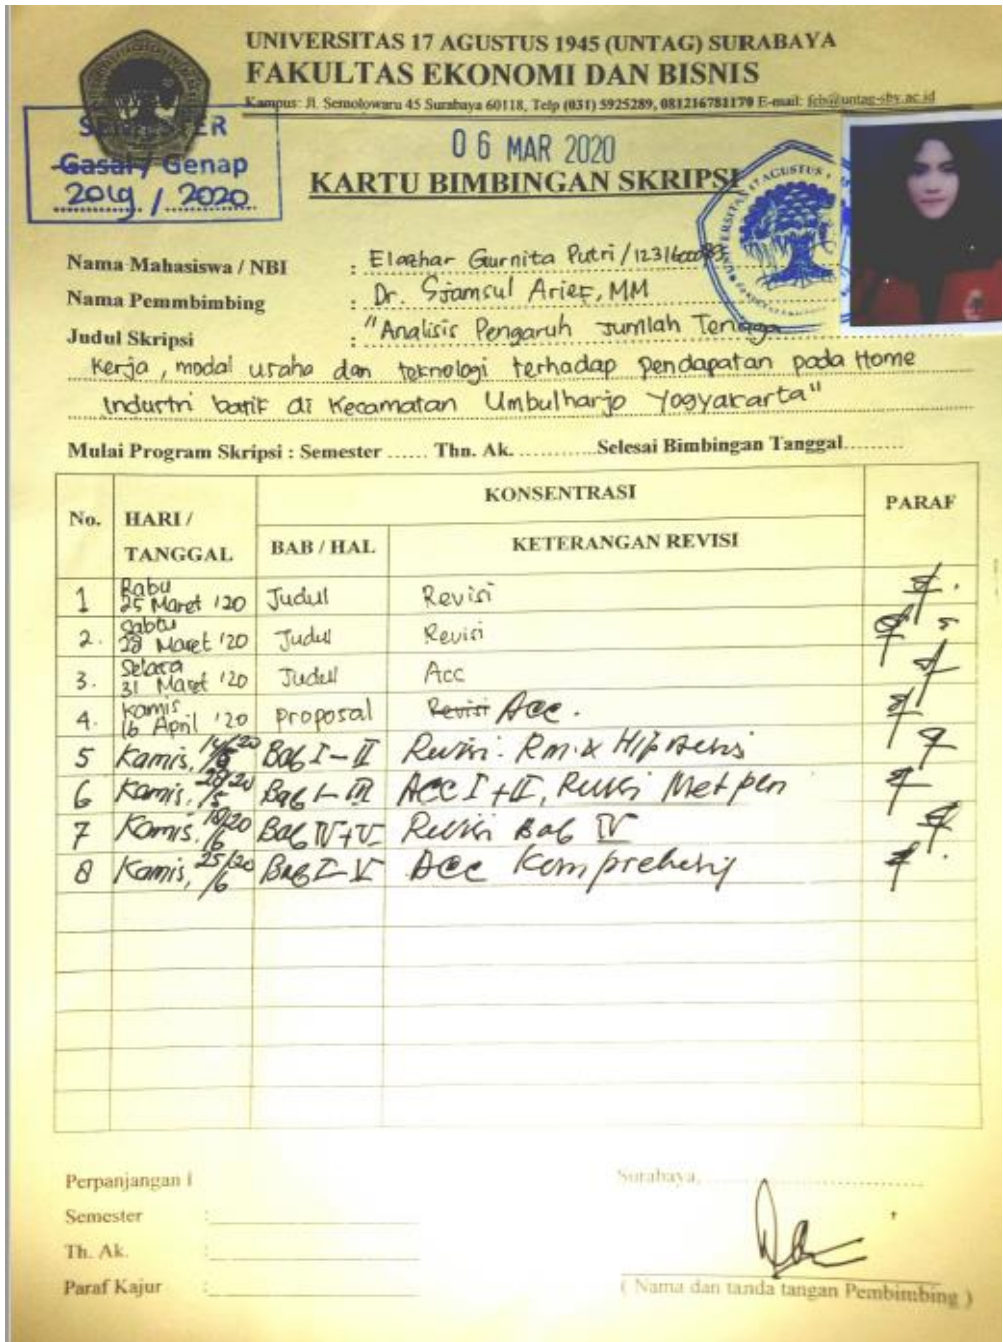 UNIVERSITAS 17 AGUSTUS 1945 (UNTAG) SURABAYA
FAKULTAS EKONOMI DAN BISNIS
Kampus: Jl. Semolowaru 45 Surabaya 60118, Telp (031) 5925289, 081216781170 E-mail: feb@untag-sby.ac.id
SEMESTER
Gasal / Genap
2019 / 2020
06 MAR 2020
KARTU BIMBINGAN SKRIPSI
Nama Mahasiswa / NBI : Elazhar Gurnita Putri /
Nama Pemmbimbing : Dr. Sjamsul Arief, MM
Judul Skripsi : "Analisis Pengaruh Jumlah Tenaga
Kerja, modal usaha dan teknologi terhadap pendapatan pada Home
Industri batik di Kecamatan Umbulharjo Yogyakarta"
Mulai Program Skripsi : Semester ...... Thn. Ak. ............Selesai Bimbingan Tanggal.........
No. HARI / TANGGAL KONSENTRASI PARAF
BAB / HAL KETERANGAN REVISI
1 Rabu 25 Maret '20 Judul Revisi
2. Sabtu 28 Maret '20 Judul Revisi
3. Selasa 31 Maret '20 Judul Acc
4. Kamis 16 April '20 proposal Revisi Acc.
5 Kamis, Bab I - II Revisi
6 Kamis, Bab I - III ACC I + II, Revisi Metpen
7 Kamis, 18/6 20 Bab IV + V Revisi Bab IV
8 Kamis, 25/6 20 Bab I - V Acc Komprehensif
Perpanjangan I
Semester :
Th. Ak. :
Paraf Kajur :
Surabaya,
( Nama dan tanda tangan Pembimbing )